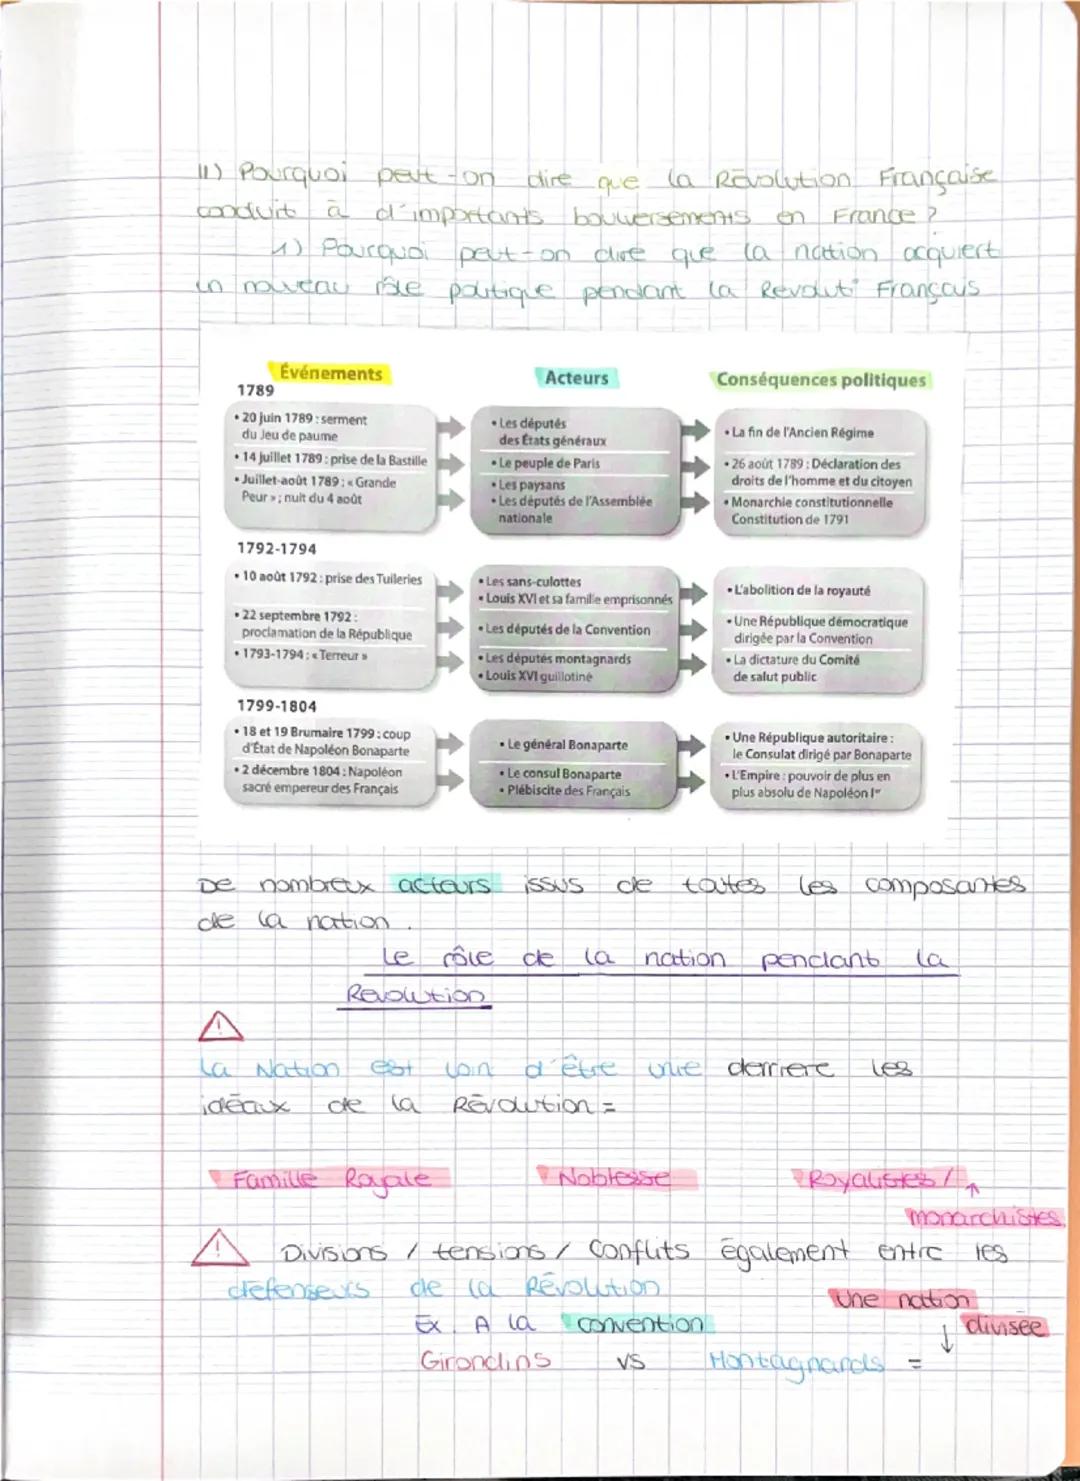 II) Pourquoi peut-on dire que la Révolution Française
conduit à d'importants bouleversements en France ?
1) Pourquoi peut-on dire que la nation acquiert
un nouveau rôle politique pendant la Révoluti° Français
Événements
Acteurs
Conséquences politiques
1789
• 20 juin 1789 : serment
du Jeu de paume
• 14 juillet 1789 : prise de la Bastille
• Juillet-août 1789 : « Grande
Peur » ; nuit du 4 août
• Les députés
des États généraux
• Le peuple de Paris
• Les paysans
• Les députés de l'Assemblée
nationale
• La fin de l'Ancien Régime
• 26 août 1789 : Déclaration des
droits de l'homme et du citoyen
• Monarchie constitutionnelle
Constitution de 1791
1792-1794
• 10 août 1792 : prise des Tuileries
• 22 septembre 1792 :
proclamation de la République
• 1793-1794 : « Terreur »
• Les sans-culottes
• Louis XVI et sa famille emprisonnés
• Les députés de la Convention
• Les députés montagnards
• Louis XVI guillotiné
• L'abolition de la royauté
• Une République démocratique
dirigée par la Convention
• La dictature du Comité
de salut public
1799-1804
• 18 et 19 Brumaire 1799 : coup
d'État de Napoléon Bonaparte
• 2 décembre 1804 : Napoléon
sacré empereur des Français
• Le général Bonaparte
• Le consul Bonaparte
• Plébiscite des Français
• Une République autoritaire :
le Consulat dirigé par Bonaparte
• L'Empire : pouvoir de plus en
plus absolu de Napoléon Ier
De nombreux acteurs issus de toutes les composantes
de la nation.
Le rôle de la nation pendant la
Révolution
⚠
La Nation est loin d'être unie derriere les
idéaux de la Révolution =
Famille Royale Noblesse Royalistes / ↑
monarchistes
⚠ Divisions / tensions / Conflits également entre les
défenseurs de la Révolution
Une nation
divisée
Ex. A la convention ↓
Girondins vs Montagnards =